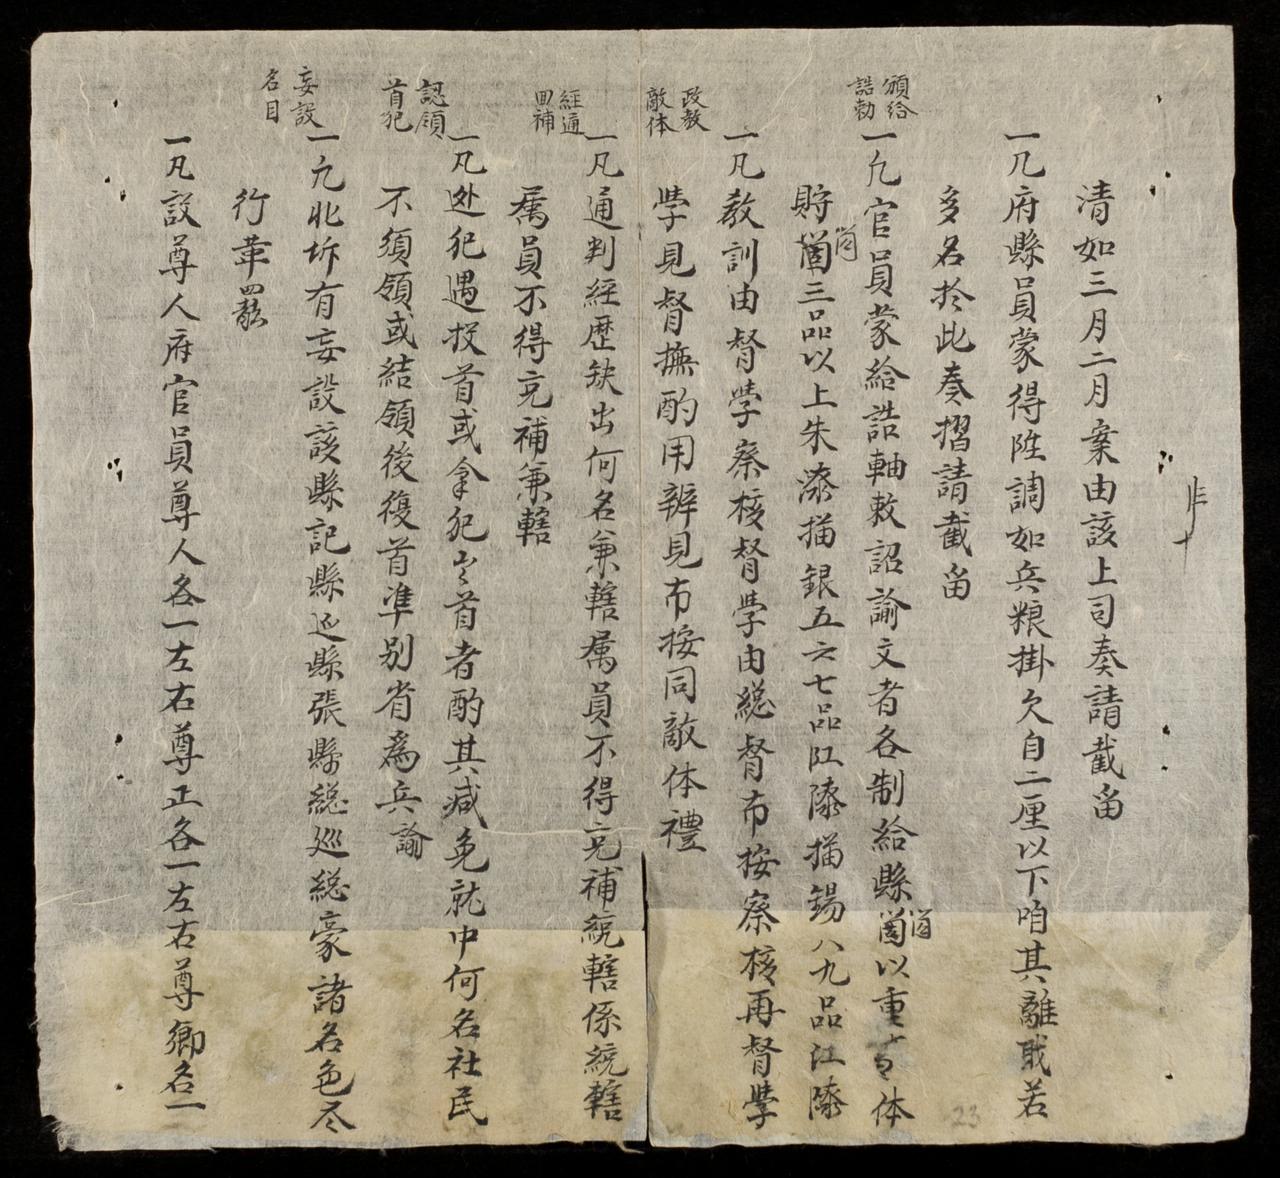 清如三月二月案由該上司奏請截畄
一凢府縣員蒙得陞調如兵粮掛欠自二厘以下咱其離戝若
多名扵此奏摺請截畄
頒給
誥勅
一凢官員蒙給誥軸敕詔諭文者各制給縣箇以重体
貯箇三品以上朱漆描銀五六七品紅漆描錫八九品江漆
一凡教訓由督學察核督學由総督布按察核再督學
政教
敵体
學見督撫酌用辨見布按同敵体禮
一凡通判經歷缺出何名兼轄属員不得充補統轄係統轄
經通
囬補
属員不得充補兼轄
一凡逃犯遇投首或拿犯首者酌其减免就中何名社民
認領
首犯
不須領或結領後復首準别省為兵諭
一凢北圻有妄設該縣記縣巡縣張縣総巡総豪諸名色尽
妄設
名目
行革罷
一凡設尊人府官員尊人各一左右尊正各一左右尊卿名一
23